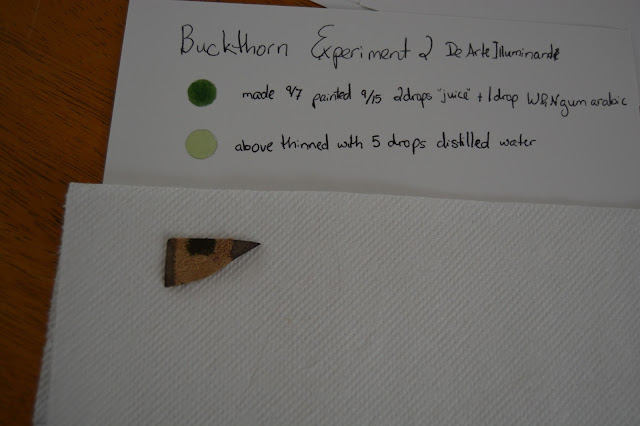 Buckthorn Experiment 2 De Arte Illuminandi
made 9/7 painted 9/15 2drops "juice" + 1drop W&N gum arabic
above thinned with 5 drops distilled water